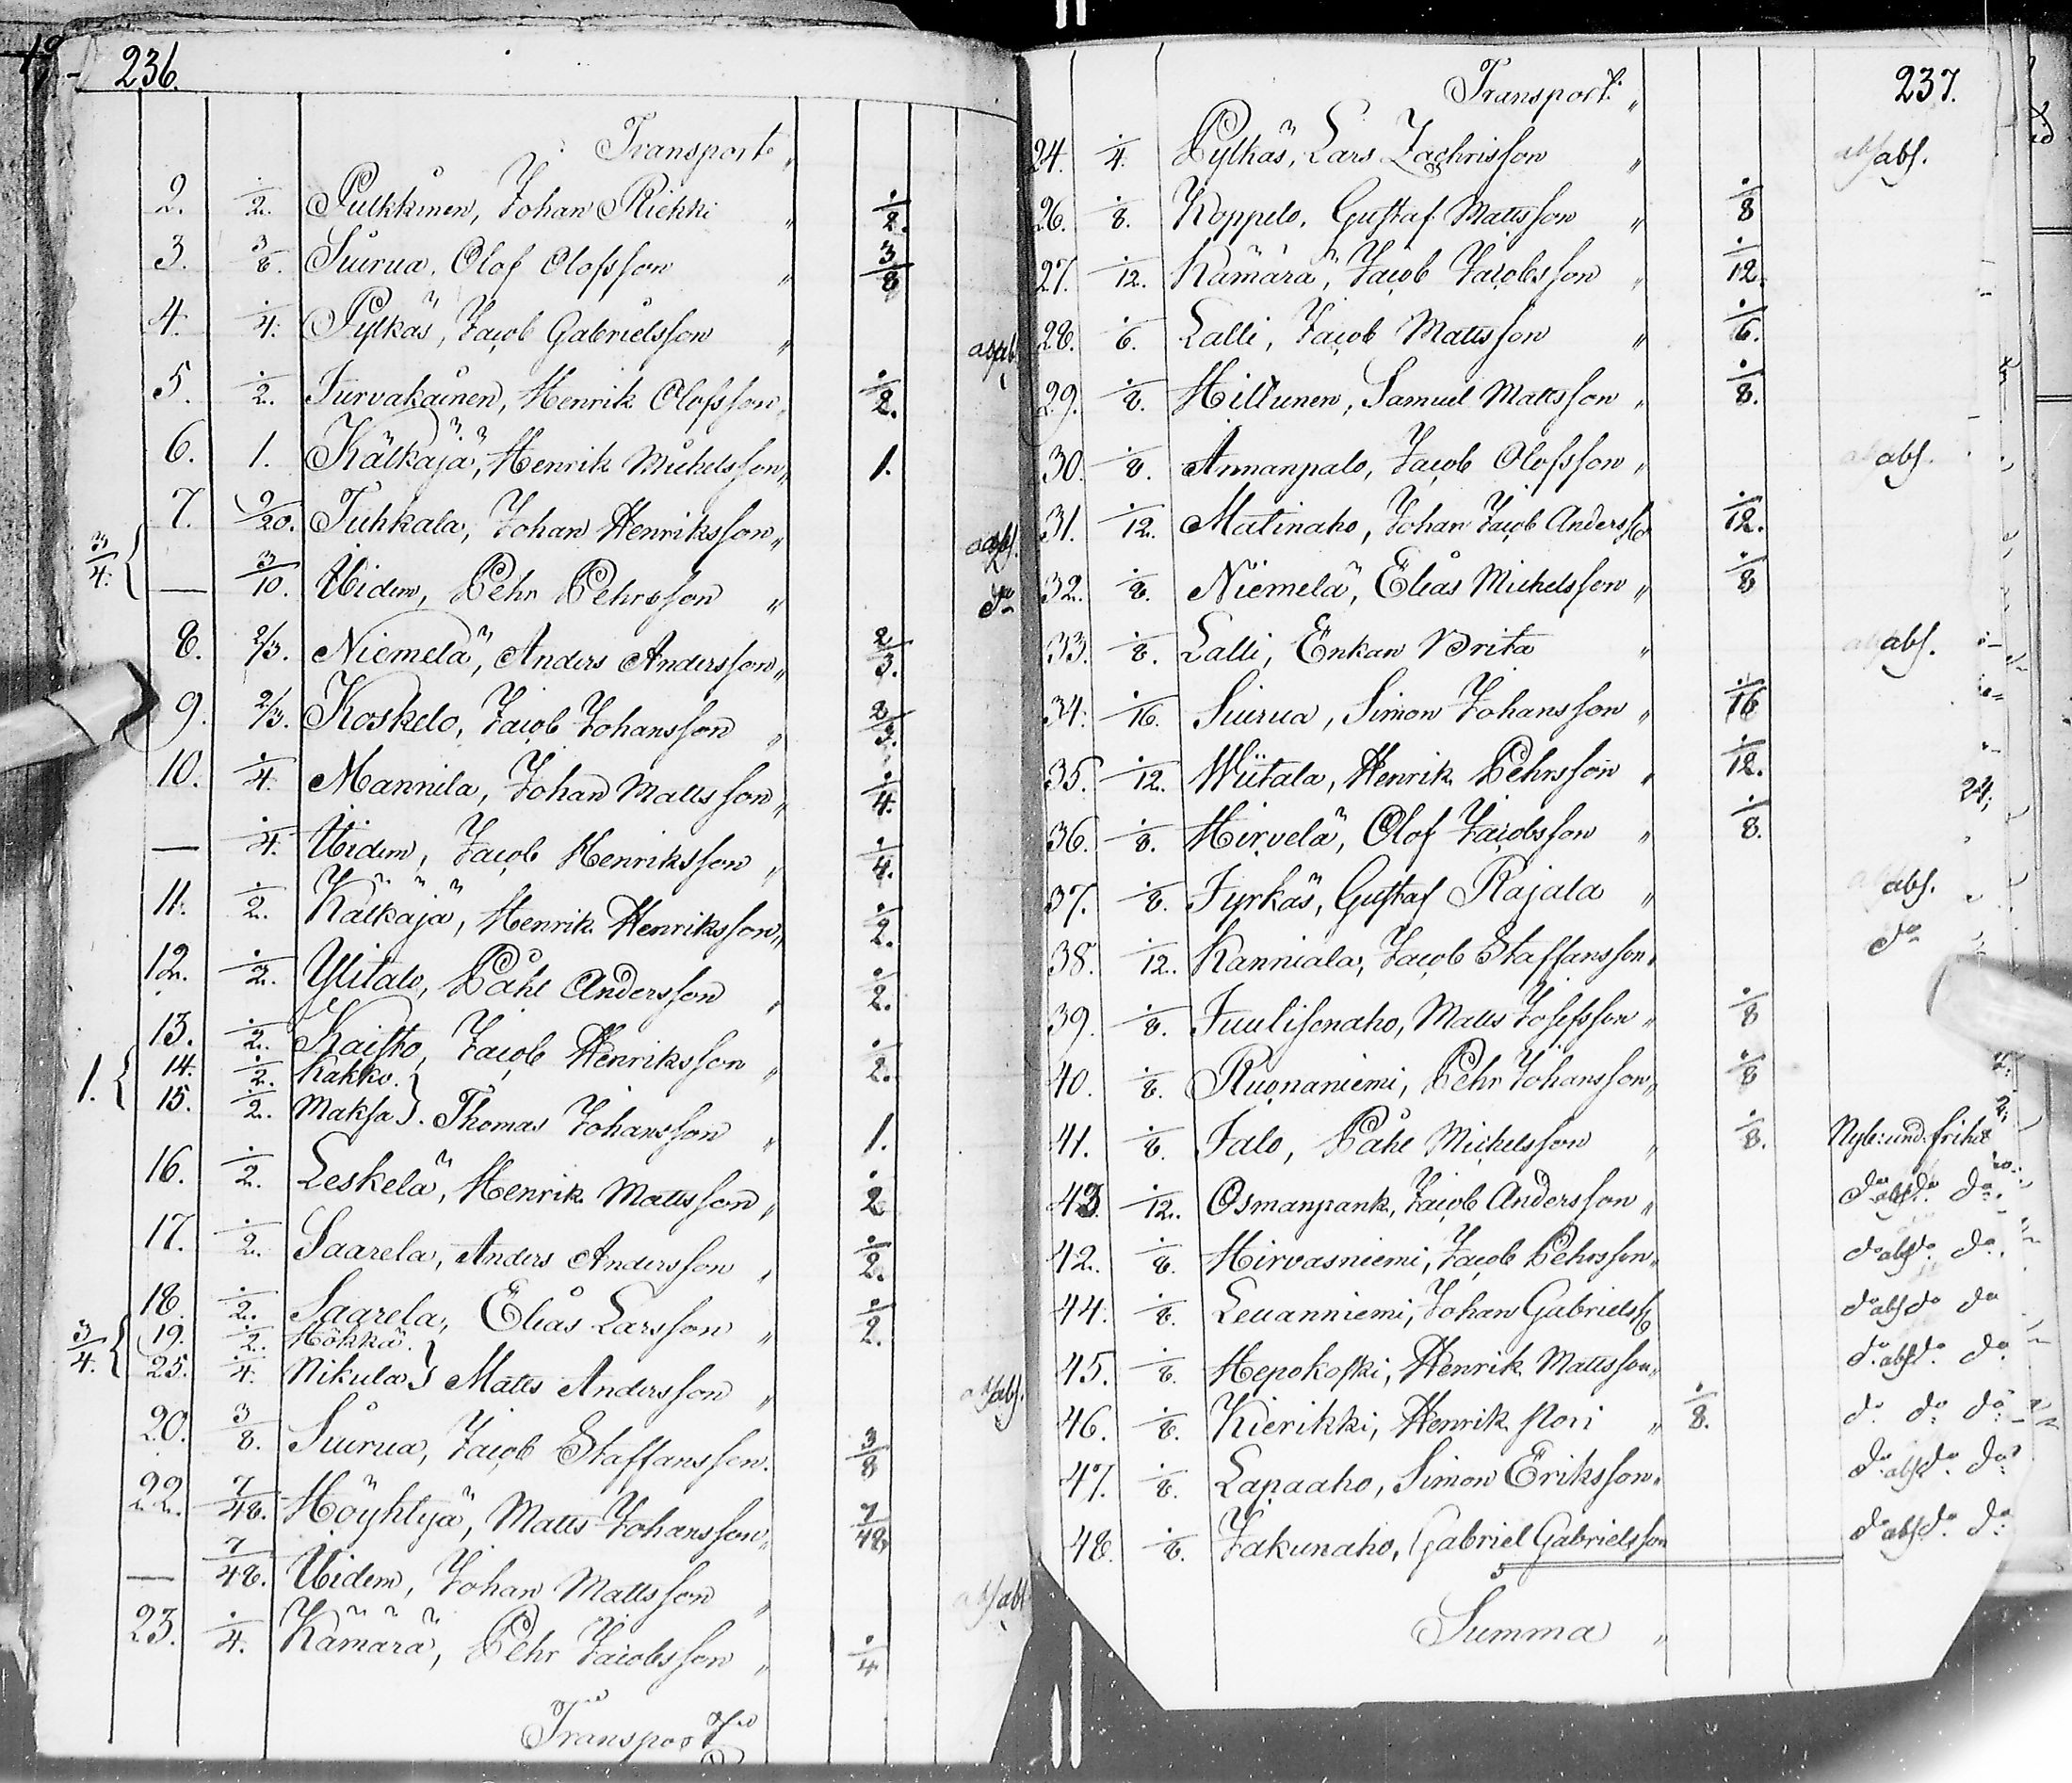 236.
Transport „
2. ½. Pulkkinen, Johan Riekki „ ½.
3. 3/8. Siurua, Olof Olofsson „ 3/8
4. ¼. Pylkäs, Jacob Gabrielsson „ abs.
5. ½. Turvakainen, Henrik Olofsson „ ½.
6. 1. Kälkäjä, Henrik Michelsson „ 1.
7. 9/20. Tuhkala, Johan Henriksson „ abs.
¾. { — 3/10. Ibidem, Pehr Pehrsson „ do
8. 2/3. Niemelä, Anders Andersson „ 2/3.
9. 2/3. Koskelo, Jacob Johansson „ 2/3.
10. ¼. Mannila, Johan Mattsson „ ¼.
— ¼. Ibidem, Jacob Henriksson „ ¼.
11. ½. Kälkäjä, Henrik Henriksson „ ½.
12. ½. Ylitalo, Påhl Andersson „ ½.
13. ½. Kaisto, Jacob Henriksson „ ½.
1. { 14. ½. Kakko. }
15. ½. Maksa }. Thomas Johansson „ 1.
16. ½. Leskelä, Henrik Mattsson „ ½
17. ½. Saarela, Anders Andersson „ ½.
18. ½. Saarela, Elias Larsson „ ½.
¾. { 19. ½. Hökkä. }
25. ¼. Nikula } Matts Andersson „ abs.
20. 3/8. Siurua, Jacob Staffansson. 3/8
22. 7/48. Höyhtyä, Matts Johansson „ 7/48
— 7/48. Ibidem, Johan Mattsson „ abs
23. ¼. Kämärä, Pehr Jacobsson „ ¼
Transport
237.
Transport „
24. ¼. Pylkäs, Lars Zachrisson „ abs.
26. 1/8. Koppelo, Gustaf Mattsson „ 1/8
27. 1/12. Kämärä, Jacob Jacobsson „ 1/12.
28. 1/6. Lalli, Jacob Mattsson „ 1/6.
29. 1/8. Hiltunen, Samuel Mattsson „ 1/8.
30. 1/8. Annanpalo, Jacob Olofsson „ abs.
31. 1/12. Matinaho, Johan Jacob Anderss. 1/12.
32. 1/8. Niemelä, Elias Michelsson „ 1/8
33. 1/8. Lalli, Enkan Brita „ abs.
34. 1/16. Siurua, Simon Johansson „ 1/16
35. 1/12. Wiitala, Henrik Pehrsson „ 1/12.
36. 1/8. Hirvelä, Olof Jacobsson „ 1/8.
37. 1/8. Jyrkäs, Gustaf Rajala „ abs.
38. 1/12. Kanniala, Jacob Staffansson „ do
39. 1/8. Juulisonaho, Matts Josefsson „ 1/8
40. 1/8. Ruonaniemi, Pehr Johansson „ 1/8
41. 1/8. Jalo, Påhl Michelsson „ 1/8. Nyb: und: frihet
43. 1/12. Osmanpank, Jacob Andersson „ do abs do do
42. 1/8. Hirvasniemi, Jacob Pehrsson „ do abs do. do.
44. 1/8. Leuanniemi, Johan Gabrielss. do abs do do
45. 1/8. Hepokoski, Henrik Mattsson „ do abs do. do.
46. 1/8. Kierikki, Henrik Pori „ 1/8. do do do
47. 1/8. Lapaaho, Simon Eriksson „ do abs do. do
48. 1/8. Jakunaho, Gabriel Gabrielsson do abs do. do
Summa „